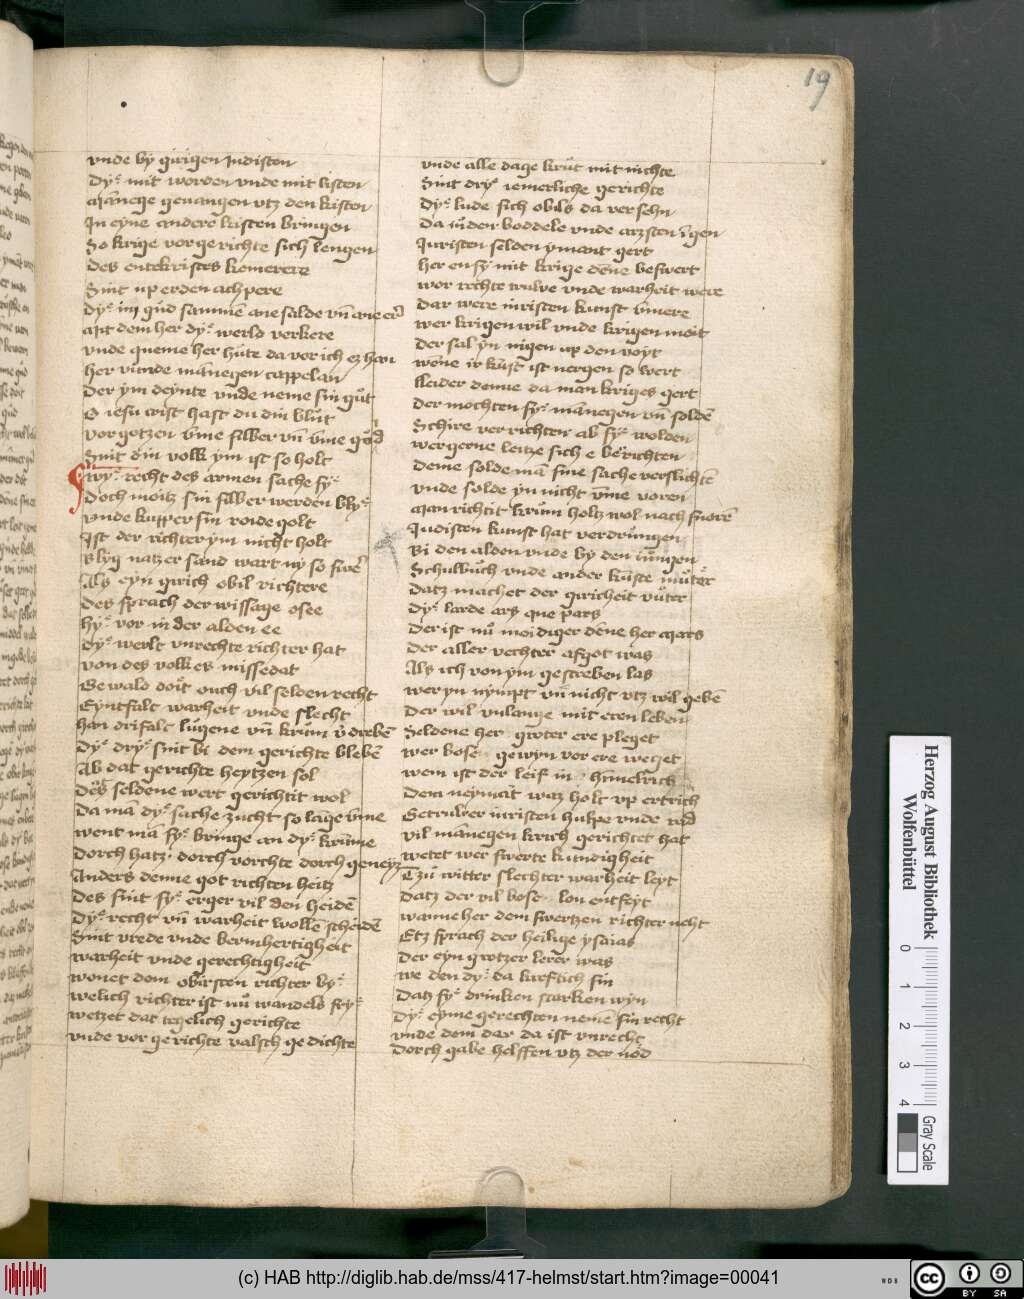 19
vnde by girigen Judisten
Dy mit worden vnde mit listen
Manege geuangen vtz den kisten
In eyne andere kisten bringen
So krige vor gerichte sich lengen
Des entekristes kemerere
Sint up erden achpere
Dy im gud sammē ane salde vn̄ ane er
Mit dem her dy werld verkere
vnde queme her hute da vor ich ez han
her vunde manegen cappelan
Der ym deynte vnde neme sin gůt
O iesu crist hast du din blůt
vor gotzen vm̄e silber vn̄ vm̄e gold
Sint din volk ym ist so holt
wy recht des armen sache sy
Doch moitz sin silber werden bly
vnde kupper sin rode golt
Ist der richter ym nicht holt
Blyg natzer sand wart ny so swer
Als eyn girich obil richtere
Des sprach der wissage osee
hy vor in der alden ee
Dy werlt vnrechte richter hat
von des volkes missedat
Gewald doit ouch vil selden recht
Eyntfalt warheit vnde slecht
han drifalt lugene vn̄ krum v̄dreben
Dy dry sint bi dem gerichte bleben
Ab dat gerichte heytzen sol
Des seldene wert gerichtit wol
Da man dy sache zucht so lage vm̄e
went man sy bringe an dy krume
Dorch hatz dorch vorchte dorch geneytz
Anders denne got richten heitz
Des sint sy erger vil den heiden
Dy recht vn̄ warheit wollē scheiden
Sint vrede vnde bermhertigheit
warheit vnde gerechtigheit
wonet dem obirsten richter by
welich richter ist nů wandels fry
wetzet dat tegelich gerichte
vnde vor gerichte valsch gedichte
vnde alle dage krůt mit nichte
Sint dry iemerliche gerichte
Dy lude sich obils da versehn
Da in der boddele vnde artzsten igen
Iuristen selden ymant gert
her en sy mit krige dēne beswert
wor rechte truwe vnde warheit were
Dar were iuristen kunst vmmere
wer krigen wil vnde krigen moit
Der sal yn nigen up den voyt
wēne ir kunst ist nergen so wert
Leider denne da man kriges gert
Der mochten sy manegen vn̄ solden
Schire verrichten ab sy wolden
wer gerne leitze sich e berichten
Deme solde man sine sache verslichten
vnde solde yn nicht vm̄e voren
Man richtit krum holtz wol nach snoren
Judisten kunst hat verdrungen
Bi den alden vnde by den iungen
Schulbuch vnde ander kunste muter
Datz machet der giricheit vuter
Dy larde ars que pars
Der ist nů meidiger dēne her mars
Der aller rechter afgot was
Als ich von ym gescreben las
wer yn nympt vn̄ nicht vtz wil geben
Der wil vnlange mit eren leben
Seldene her groter ere pleget
wer bose gewyn vor ere weget
wem ist der leif in himelrich
Dem neyman waz holt vp ertrich
Getruwer iuristen hulpe vnde rad
vil manegen krich gerichtet hat
wetet wer swerte kundigheit
Tzu witter slechter warheit leyt
Datz der vil bose lon entfeyt
wanne her dem swertzen richter neht
Etz sprach der heilige ysaias
Der eyn grotzer lerer was
we den dy da kreftich sin
Datz sy drinken starken wyn
Dy eyme gerechten nemē sin recht
vnde dem dar da ist vnrecht
Dorch gabe helffen vtz der nod
Herzog August Bibliothek
Wolfenbüttel
0 1 2 3 4
Gray Scale
(c) HAB http://diglib.hab.de/mss/417-helmst/start.htm?image=00041
WDB
cc BY SA